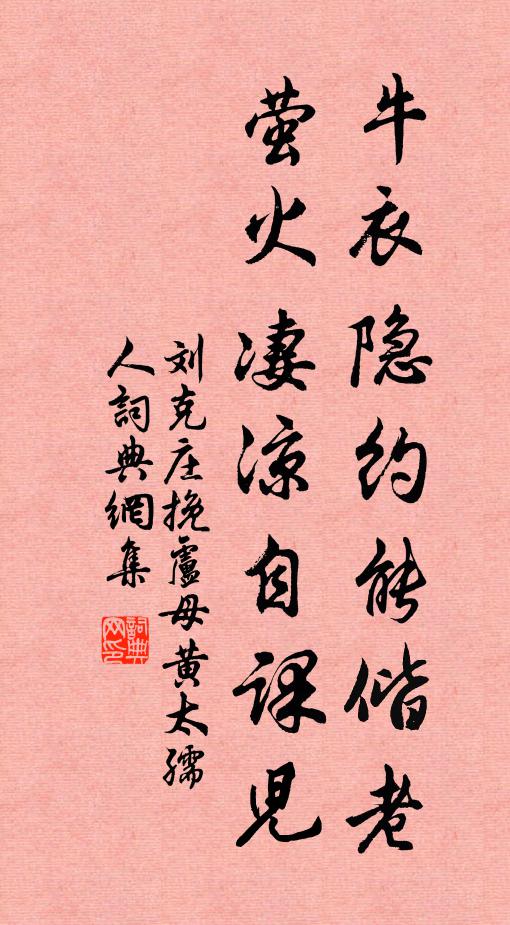 牛衣隐约能偕老
萤火凄凉自课儿
刘克庄挽盧母黄太孺
人詞典網集
詞典网印